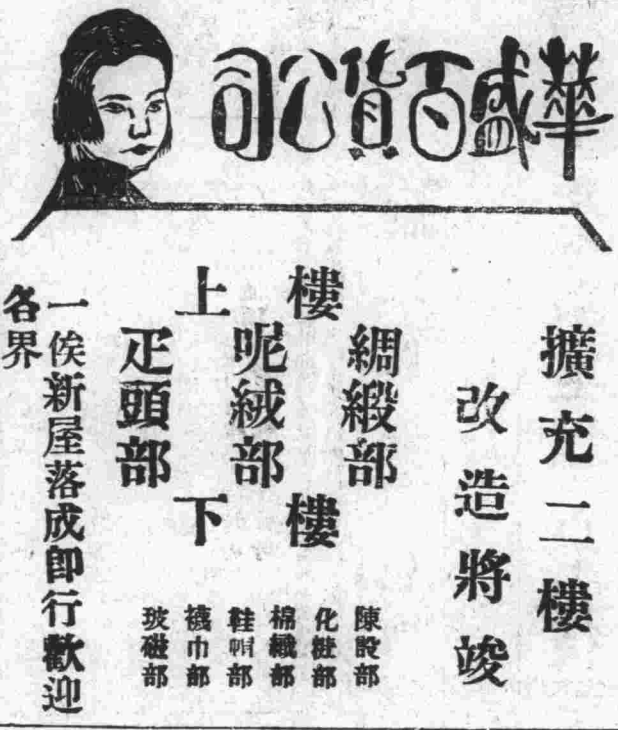 華盛百貨公司
擴充二樓
改造將竣
樓上
綢緞部
呢絨部
疋頭部
樓下
陳設部
化粧部
棉織部
鞋帽部
襪巾部
玻磁部
一俟新屋落成即行歡迎
各界